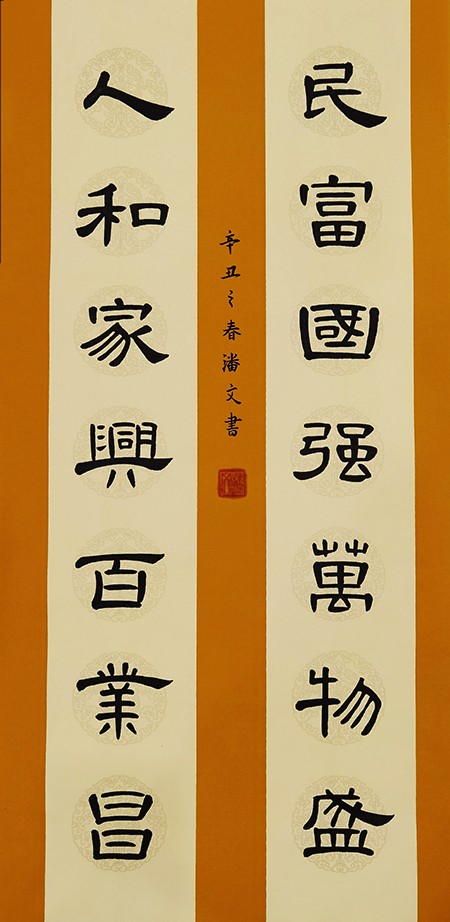 民富國强萬物盛
人和家興百業昌
辛丑之春潘文書